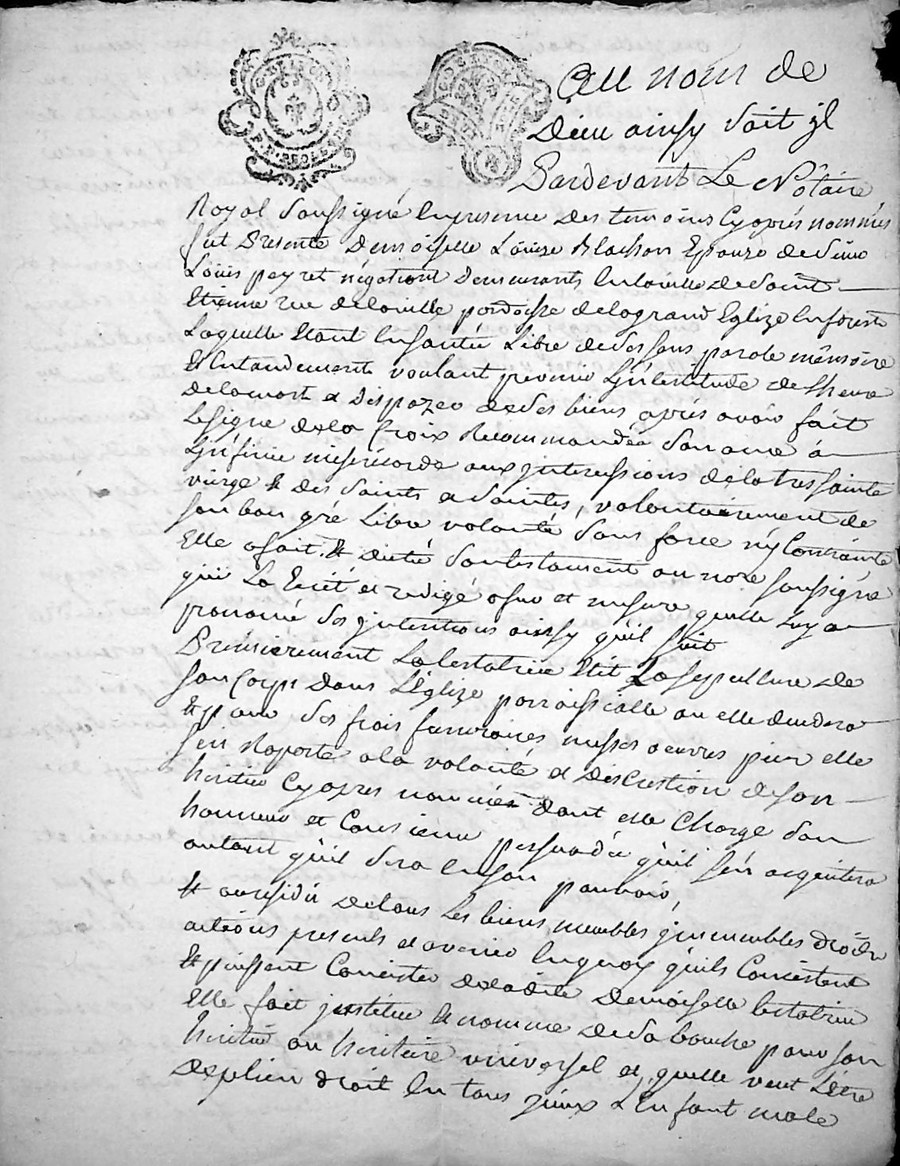 Au nom de
Dieu ainsy soit jl
Pardevant Le Notaire
Royal soussigné en presence des temoins Cyaprés nommés
fut Presente Demoiselle Louise Blachon Epouze de Sieur
Loüis peyret negotiant demeurants en la ville de Saint
Etienne rue de la ville paroisse de la grand Eglize en forest
Laquelle Etant En santé Libre de ses sens parole mémoire
& Entandement voulant prevenir L'jncertitude de l'heure
de la mort & Dispozer de ses biens aprés avoir fait
Le signe de la Croix Recommandée son ame á
L'jnfinie misericorde aux jntercessions de la tres sainte
vierge & des saints & saintes, volontairement de
son bon gré Libre volonté sans force ny Contrainte
Elle a fait & dicté son testament au nore soussigné
qui La Ecrit et redigé a fur et mesure quelle luy a
prononcé ses jntentions ainsy qu'il suit
Prémierement La testatrice Elit La sepulture de
son Corps dans L'Eglize parroissialle ou elle decedera
& pour ses frais funeraires messes oeuvres pies elle
s'en Raporte a la volonté & discretion de son
heritier Cyapres nommé dont elle charge son
honneur et Consience persuadée qu'il s'en acquitera
autant qu'il sera En son pouvoir,
& au residu de tous Les biens meubles jmmeubles droits
actions presents et avenir En quoy qu'ils Concistent
& puissent Concister de ladite Demoiselle testatrice
Elle fait jnstitue & nomme de sa bouche pour son
heritier ou heritiere universel et quelle veut L'être
de plein droit En tous Lieux L'Enfant male